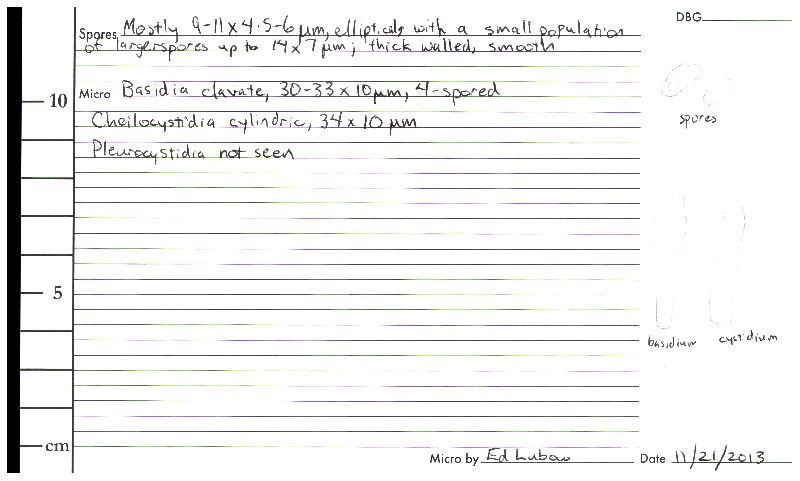 DBG
Spores Mostly 9-11 x 4.5-6 µm, elliptical, with a small population
of larger spores up to 14 x 7 µm; thick walled, smooth
Micro Basidia clavate, 30-33 x 10 µm, 4-spored
10
spores
Cheilocystidia cylindric, 34 x 10 µm
Pleurocystidia not seen
5
basidium cystidium
cm
Micro by Ed Lubow Date 11/21/2013